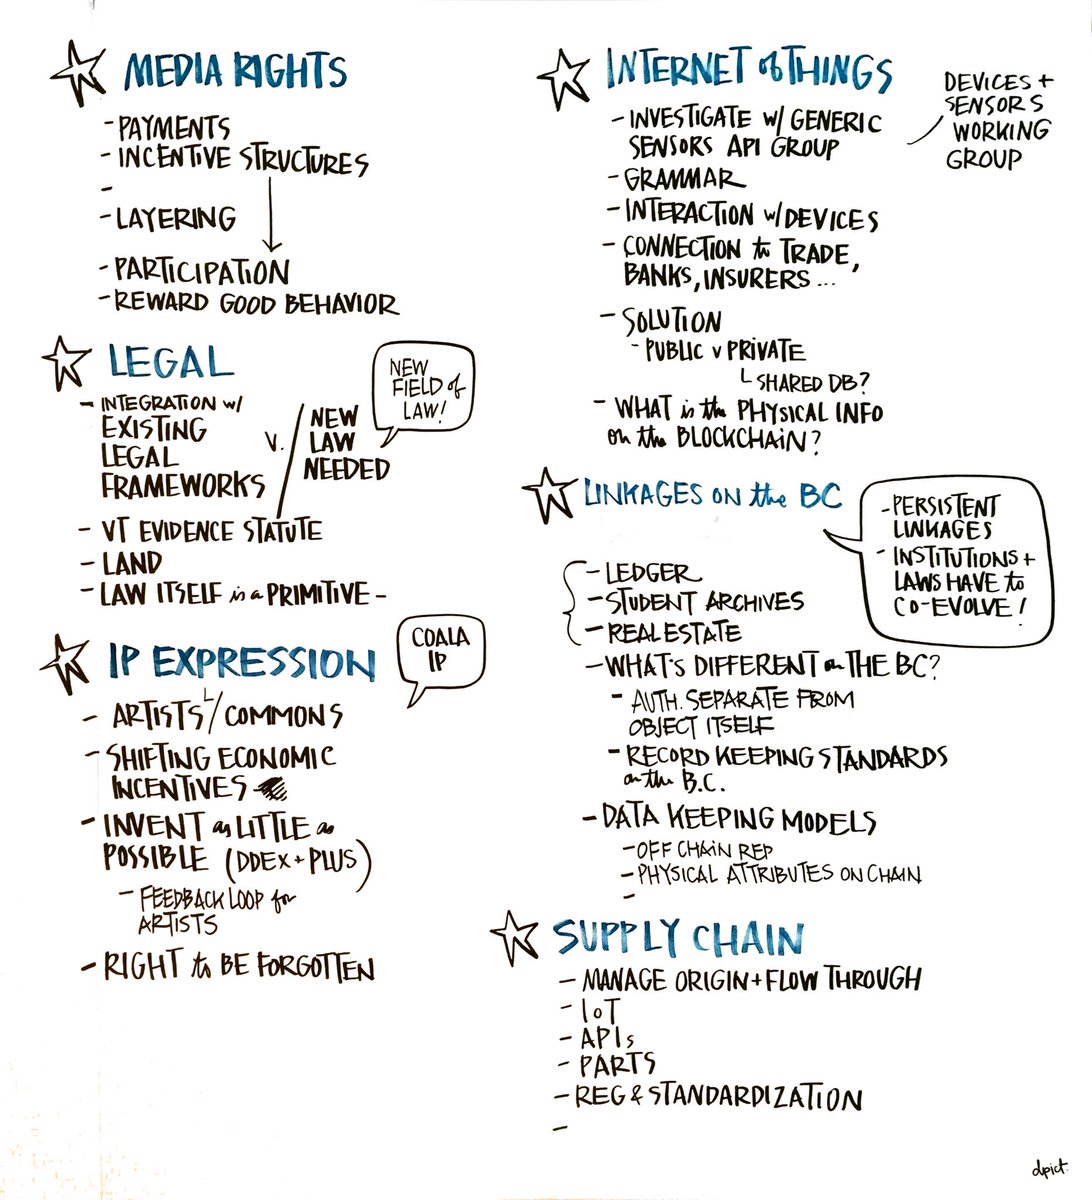 MEDIA RIGHTS
- PAYMENTS
- INCENTIVE STRUCTURES
-
- LAYERING
- PARTICIPATION
- REWARD GOOD BEHAVIOR
LEGAL
- INTEGRATION w/
EXISTING
LEGAL
FRAMEWORKS
V.
NEW
LAW
NEEDED
NEW
FIELD of
LAW!
- VT EVIDENCE STATUTE
- LAND
- LAW ITSELF is a PRIMITIVE -
IP EXPRESSION
COALA
IP
- ARTISTS / COMMONS
- SHIFTING ECONOMIC
INCENTIVES -
- INVENT as LITTLE as
POSSIBLE (DDEX + PLUS)
- FEEDBACK LOOP for
ARTISTS
- RIGHT to BE FORGOTTEN
INTERNET of THINGS
- INVESTIGATE w/ GENERIC
SENSORS API GROUP
DEVICES +
SENSORS
WORKING
GROUP
- GRAMMAR
- INTERACTION w/ DEVICES
- CONNECTION to TRADE,
BANKS, INSURERS ...
- SOLUTION
- PUBLIC v PRIVATE
SHARED DB?
- WHAT is the PHYSICAL INFO
on the BLOCKCHAIN?
LINKAGES ON the BC
- PERSISTENT
LINKAGES
- INSTITUTIONS +
LAWS HAVE to
CO-EVOLVE!
- LEDGER
- STUDENT ARCHIVES
- REAL ESTATE
- WHAT'S DIFFERENT on THE BC?
- AUTH. SEPARATE FROM
OBJECT ITSELF
- RECORD KEEPING STANDARDS
on the B.C.
- DATA KEEPING MODELS
- OFF CHAIN REP
- PHYSICAL ATTRIBUTES ON CHAIN
-
SUPPLY CHAIN
- MANAGE ORIGIN + FLOW THROUGH
- IoT
- APIs
- PARTS
- REG & STANDARDIZATION
-
dpict.